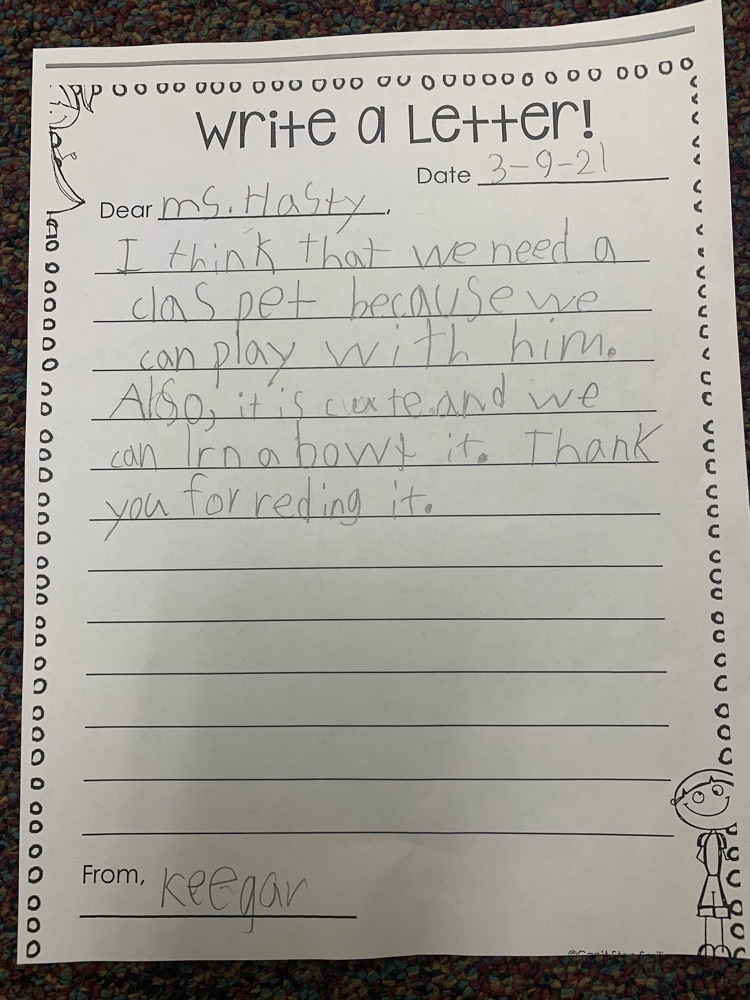 Write a Letter!
Date 3-9-21
Dear ms. Hasty,
I think that we need a
clas pet because we
can play with him.
Also, it is cute and we
can lrn abowt it. Thank
you for reding it.
From, keegan